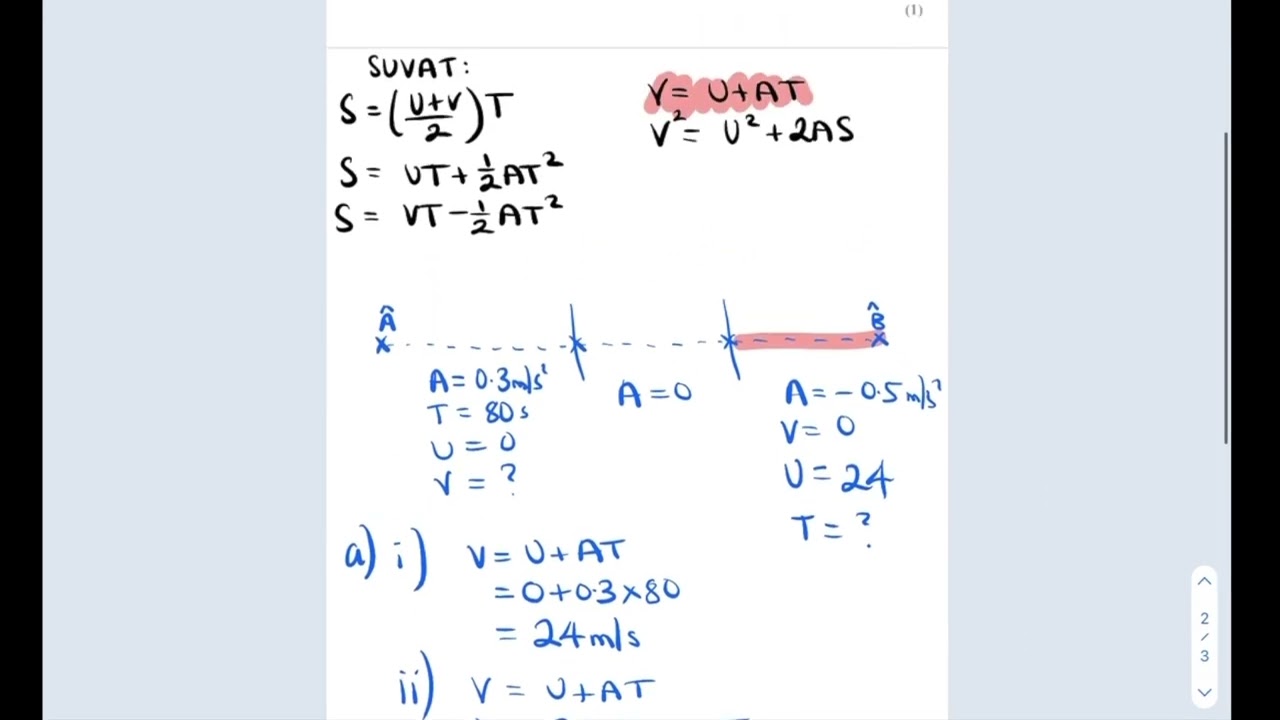 (1)
SUVAT:
S = (U+V/2)T
V = U+AT
V² = U² + 2AS
S = UT + ½AT²
S = VT − ½AT²
Â
B̂
A = 0.3m/s²
T = 80s
U = 0
V = ?
A = 0
A = − 0.5 m/s²
V = 0
U = 24
T = ?
a) i) V = U + AT
= 0 + 0.3 × 80
= 24 m/s
ii) V = U + AT
2
/
3